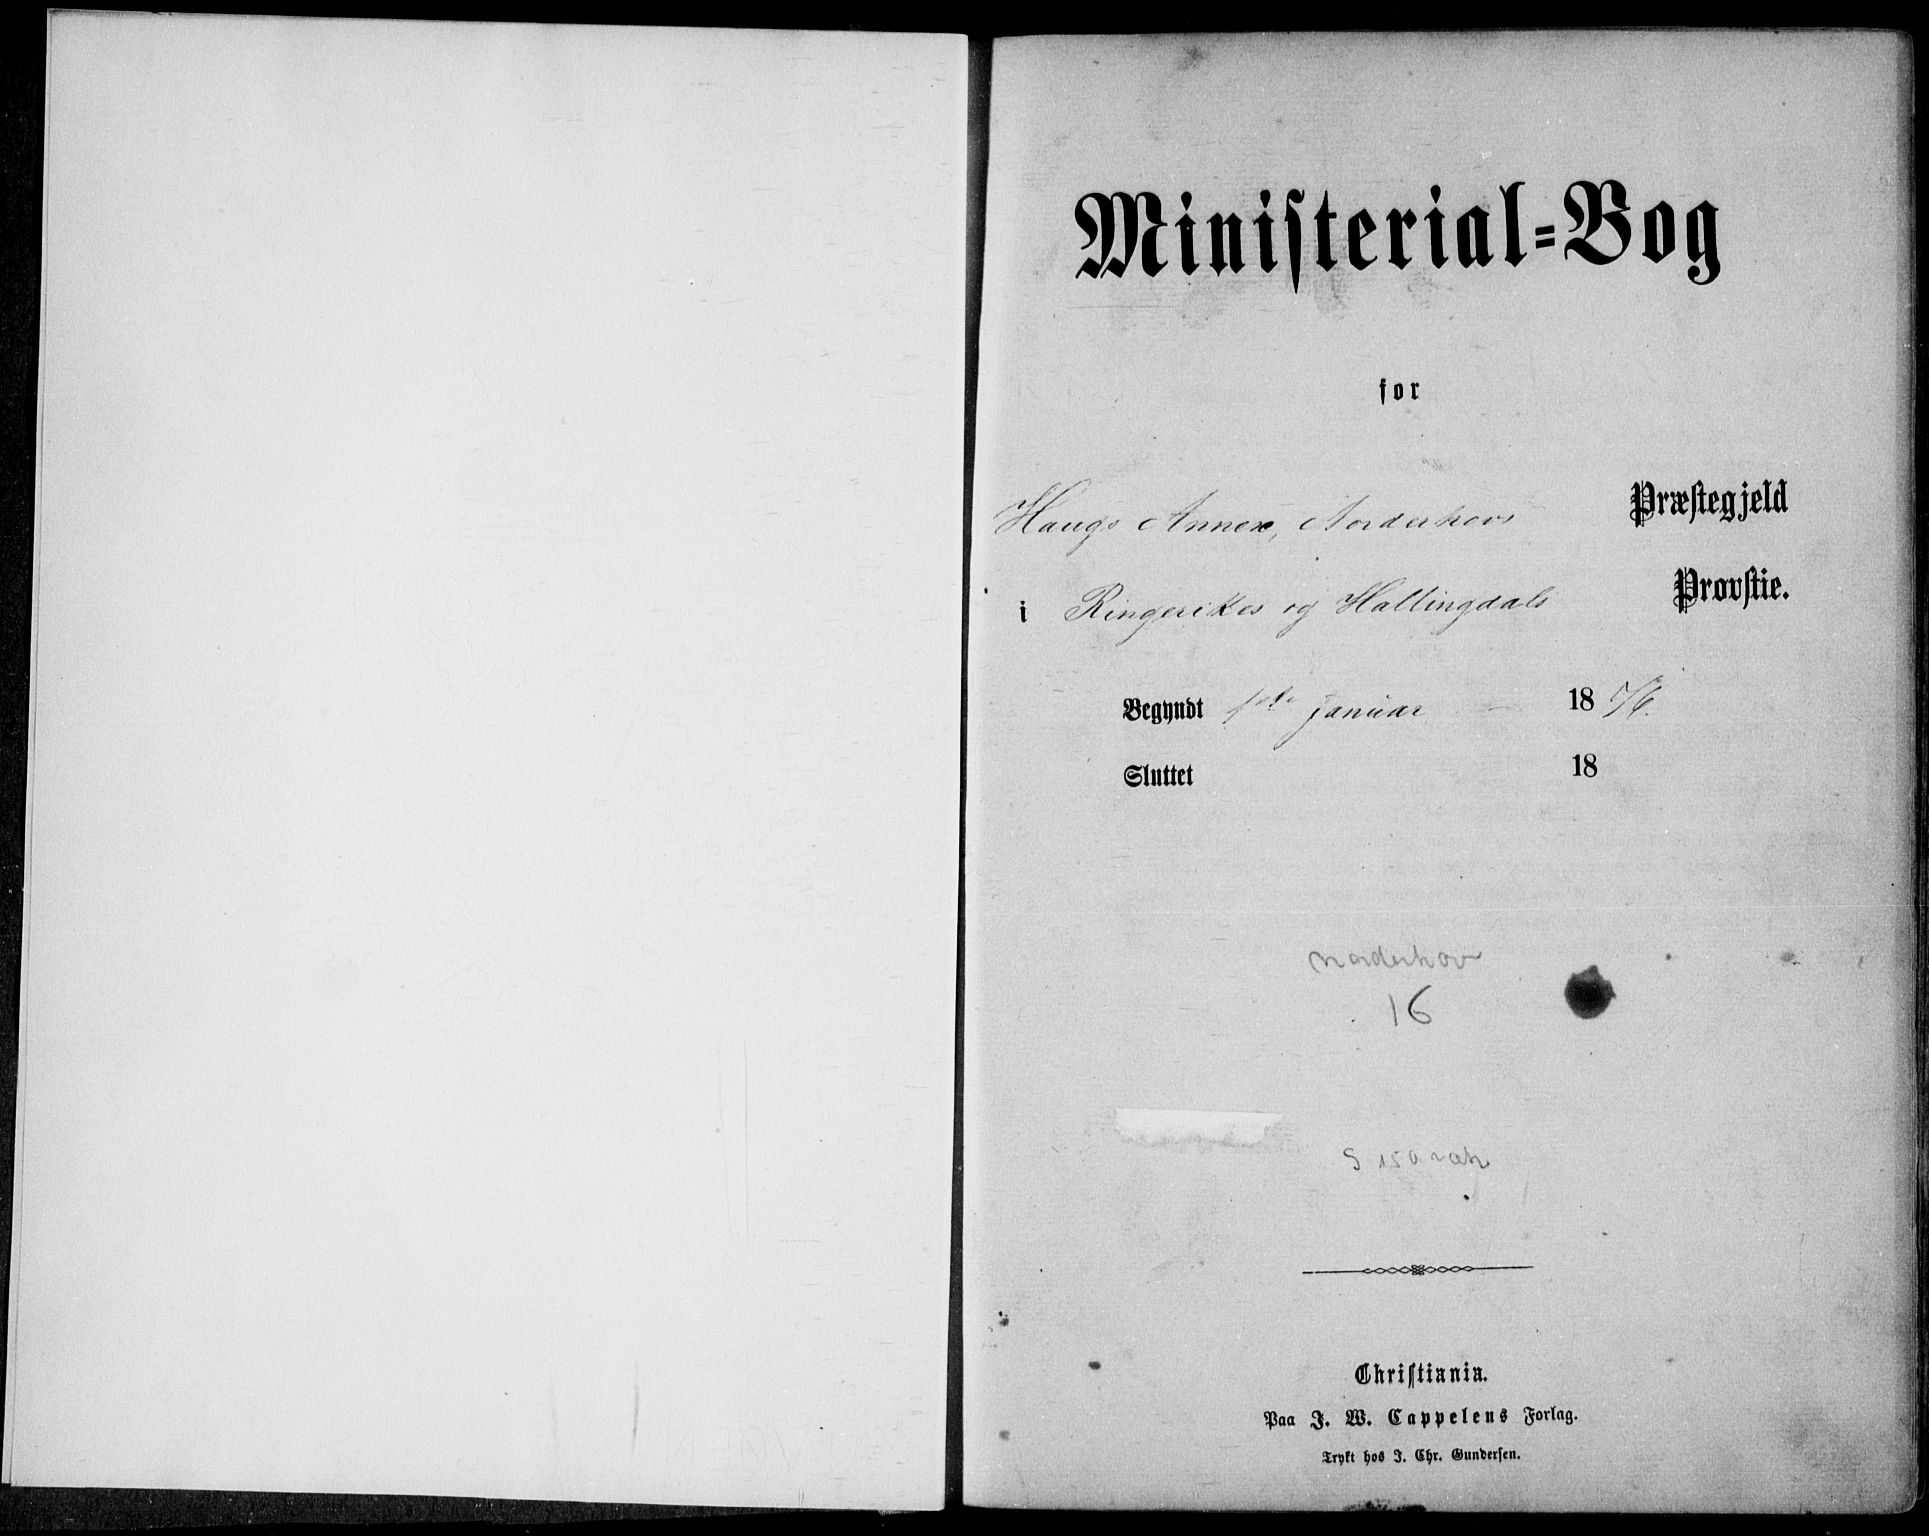 Ministerial=Bog
for
Haugs Annex, Norderhovs Præstegjeld
i Ringerikes og Hallingdals Provstie.
Begyndt 1ste Januar 1876.
Sluttet 18
Norderhov
16
Christiania.
Paa J. W. Cappelens Forlag.
Trykt hos J. Chr. Gundersen.